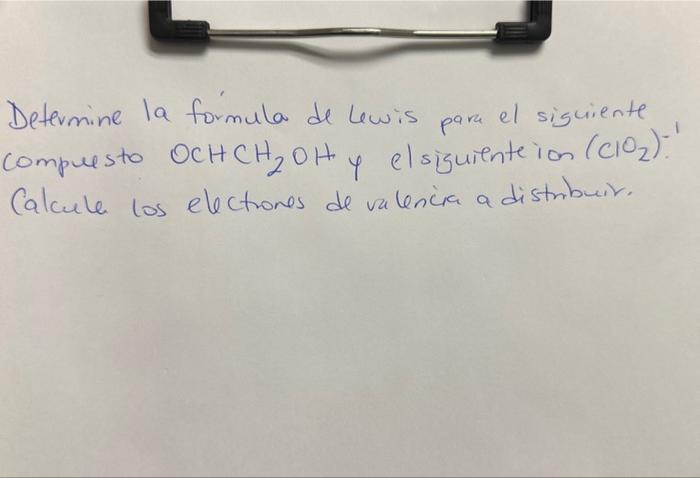 Determine la fórmula de Lewis para el siguiente
compuesto OCHCH₂OH y el siguiente ion (ClO₂)⁻¹.
Calcule los electrones de valencia a distribuir.